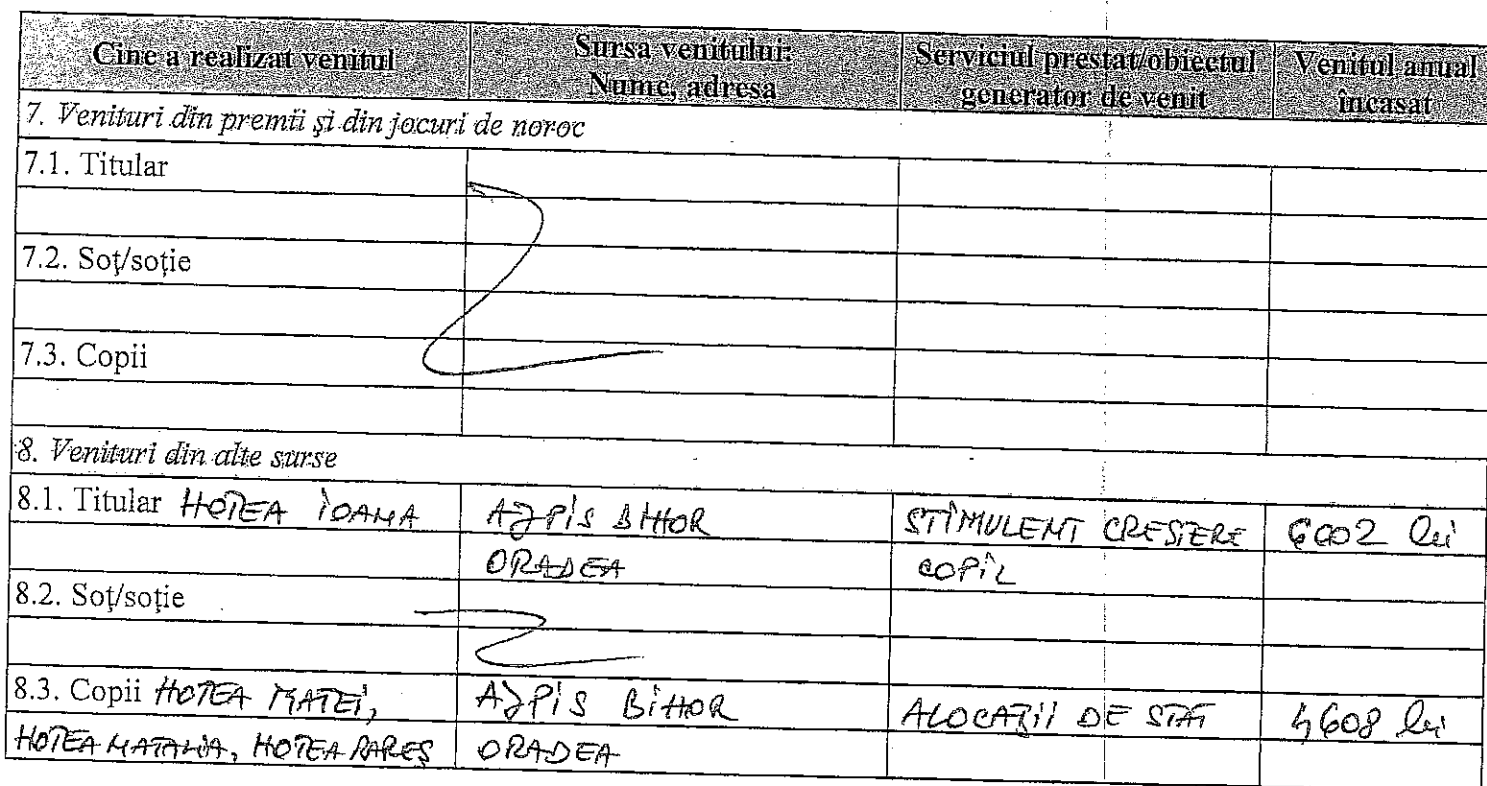 Cine a realizat venitul | Sursa venitului: Nume, adresa | Serviciul prestat/obiectul generator de venit | Venitul anual încasat
7. Venituri din premii și din jocuri de noroc
7.1. Titular
7.2. Soț/soție
7.3. Copii
8. Venituri din alte surse
8.1. Titular HOTEA IOANA | AJPIS BIHOR | STIMULENT CREȘTERE | lei
ORADEA | COPIL
8.2. Soț/soție
8.3. Copii HOTEA MATEI, | AJPIS BIHOR | ALOCAȚII DE STAT | 4608 lei
HOTEA NATALIA, HOTEA RAREȘ | ORADEA